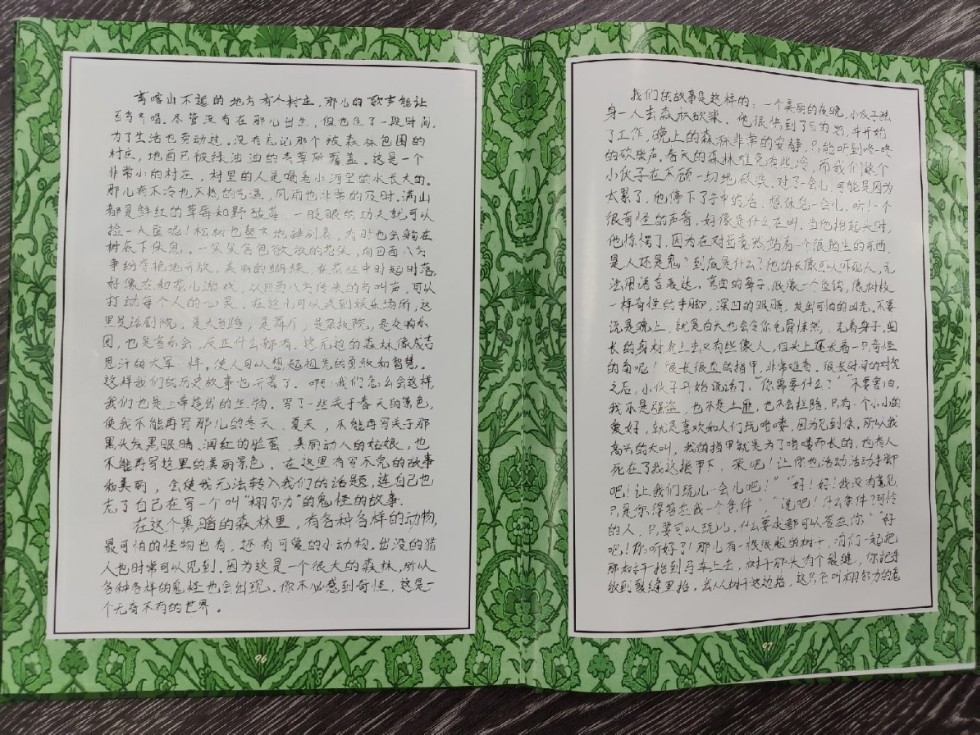 离喀山不远的地方有个村庄，那儿的歌声能让
百鸟歌唱。尽管没有在那儿出生，但也住了一段时间，
为了生活也劳动过。没有忘记那个被森林包围的
村庄，地面已被绿油油的青草所覆盖，这是一个
非常小的村庄，村里的人是喝着小河里的水长大的。
那儿有不冷也不热的气温，风雨也非常的及时。满山
都是鲜红的草莓和野故莓，一眨眼的功夫就可以
捡一盆呢！松树也整齐地排列着，有时也会躺在
树底下休息，一朵朵含包欲放的花朵，向四面八方
争纷夺艳地开放，美丽的蝴蝶，在花丛中时起时落，
好像在和花儿游戏，从四面八方传来的鸟叫声，可以
打动每个人的心灵。在这儿可以达到娱乐场所，这
里是话剧院，是大剧院，是舞厅，是
园，也是音乐会，反正什么都有。这无边的森林像成吉
思汗的大军一样。使人可以想起祖先的勇敢和智慧。
这样我们的历史故事也开幕了。啊！我们怎么会这样，
我们也是上帝造出的生物。写了一些关于春天的景色，
使我不能再写那儿的冬天、夏天，不能再写关于那
黑头发黑眼睛、润红的脸蛋、美丽动人的姑娘，也
不能再写这里的美丽景色。在这里有写不完的故事
和美丽，会使我无法转入我们的话题，连自己也
忘了自己在写一个叫“栩尔力”的鬼怪的故事。
在这个黑暗的森林里，有各种各样的动物，
最可怕的怪物也有，还有可爱的小动物。出没的猎
人也时常可以见到。因为这是一个很大的森林，所以
各种各样的鬼怪也会出现。你不必感到奇怪，这是一
个无奇不有的世界。
96
我们的故事是这样的：一个美丽的夜晚，小伙子独
身一人去森林砍柴。他很快到了目的地，并开始
了工作，晚上的森林非常的安静，只能听到咚咚
的砍柴声，春天的森林难免有些冷，而我们这个
小伙子在不顾一切地砍柴，过了一会儿，可能是因为
太累了，他停下了手中的活，想休息一会儿，听！一个
很奇怪的声音，好像是什么在叫，当他抬起头时，
他惊愕了，因为在对面竟然站着一个很陌生的东西
是人还是鬼？到底是什么？他的长像足以吓船人，无
法用语言表达，弯曲的鼻子，很像一个鱼钩，像树枝
一样奇怪的手脚，深凹的眼睛，发出可怕的凶光，不要
说是晚上，就是白天也会令你毛骨悚然，光着身子，细
长的身材看上去又有些像人，但头上还长着一只奇怪
的角呢！很长很直的指甲，非常难看，很长时间的对视
之后，小伙子开始说话了，“你需要什么？”“不要害怕，
我不是强盗，也不是土匪，也不会拦路，只有一个小小的
爱好，就是喜欢和人们玩咯喽，因为见到你，所以我
高兴的大叫，我的指甲就是为了咯喽而长的，也有人
死在了我这指甲下，来吧！让你也活动活动手脚
吧！让我们玩儿一会儿吧！”“好！好！我没有意见，
只是你得答应我一个条件”“说吧！什么条件？可怜
的人，只要可以玩儿，什么要求都可以答应你”“好
吧！你听好了！那儿有一根很粗的树干，咱们一起把
那树干抬到马车上去，树干那头有个裂缝，你把手
放到裂缝里抬，我从树干这边抬，这只名叫栩尔力的鬼
97